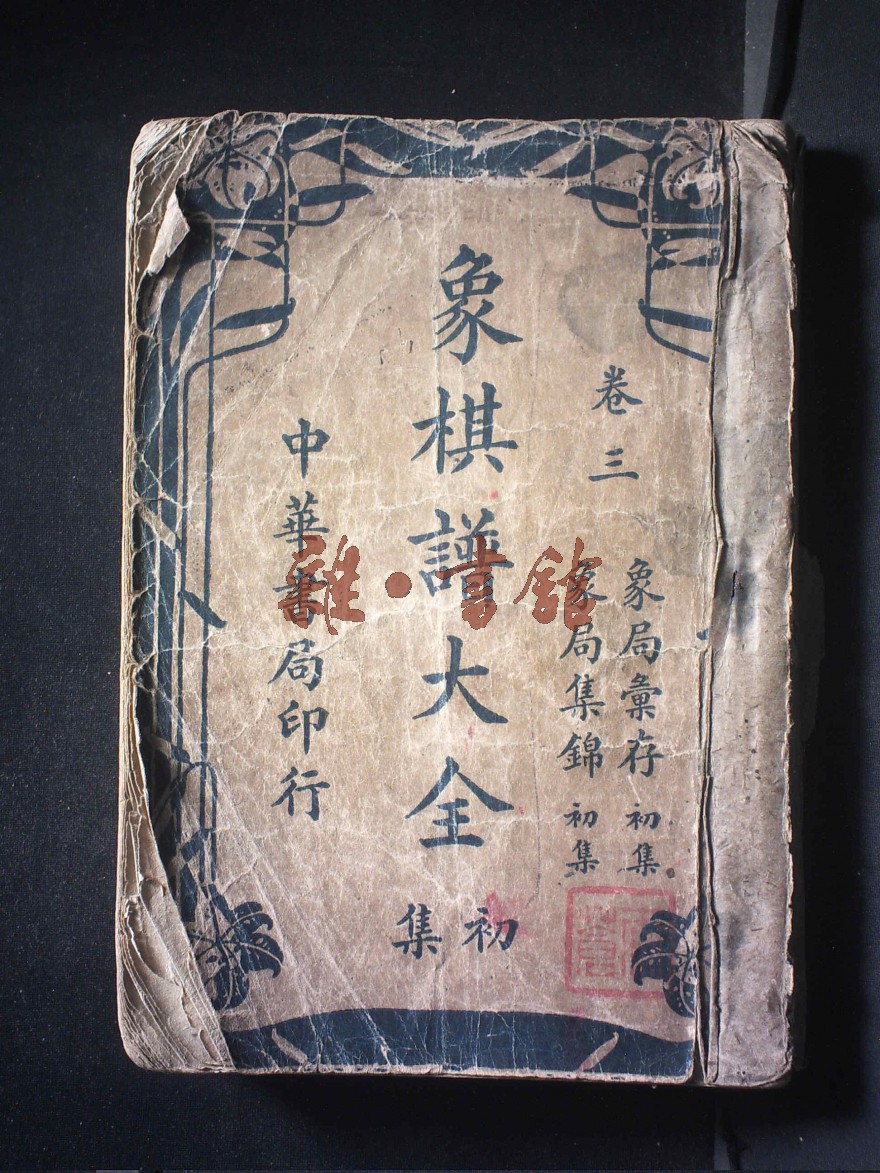 卷三
象局彙存 初集
象局集錦 初集
象棋譜大全
初集
中華書局印行
雜·書館